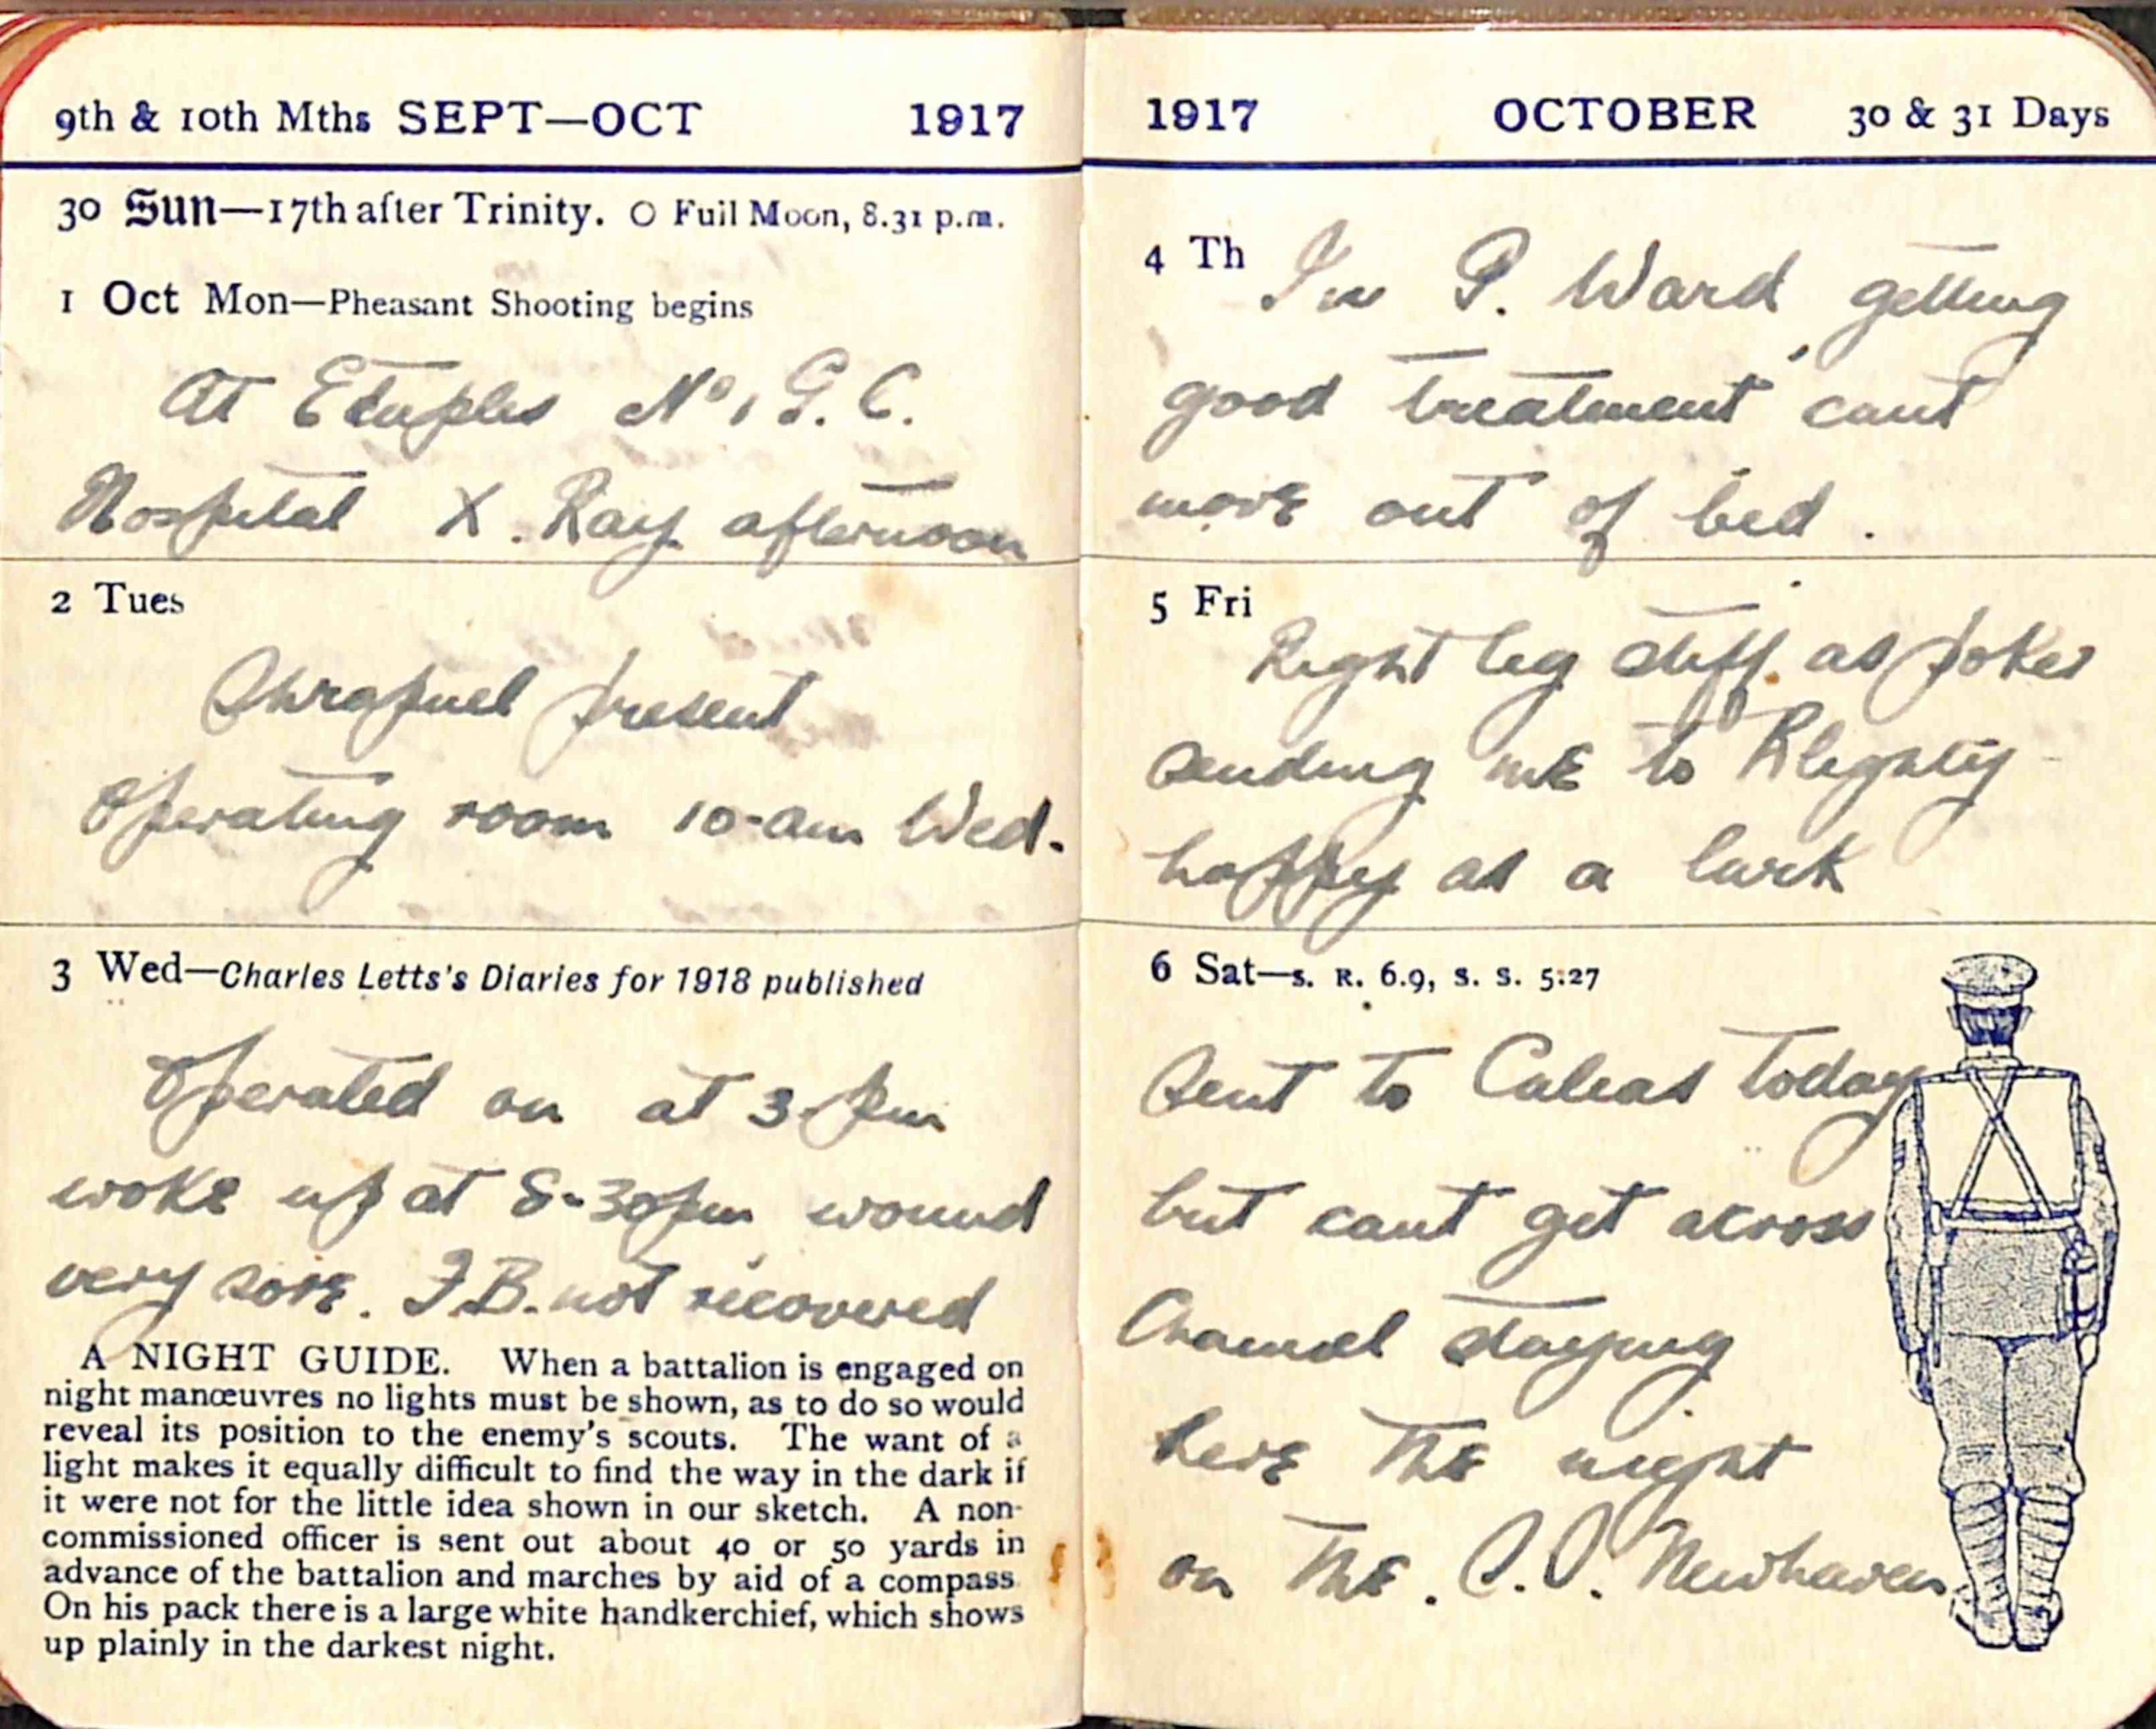 9th & 10th Mths SEPT—OCT 1917
30 Sun—17th after Trinity. O Full Moon, 8.31 p.m.
1 Oct Mon—Pheasant Shooting begins
At Etaples No 1 G. C.
Hospital X. Ray afternoon
2 Tues
Shrapnel present
Operating room 10-am Wed.
3 Wed—Charles Letts's Diaries for 1918 published
Operated on at 3-pm
woke up at 8-30pm wound
very sore. F.B. not recovered
A NIGHT GUIDE. When a battalion is engaged on
night manœuvres no lights must be shown, as to do so would
reveal its position to the enemy's scouts. The want of a
light makes it equally difficult to find the way in the dark if
it were not for the little idea shown in our sketch. A non-
commissioned officer is sent out about 40 or 50 yards in
advance of the battalion and marches by aid of a compass
On his pack there is a large white handkerchief, which shows
up plainly in the darkest night.
1917 OCTOBER 30 & 31 Days
4 Th In P. Ward getting
good treatment cant
move out of bed.
5 Fri
Right leg stiff as poker
sending me to Blighty
happy as a lark
6 Sat—S. R. 6.9, S. S. 5.27
Sent to Calais today
but cant get across
Channel staying
here the night
on the. S.S. Newhaven